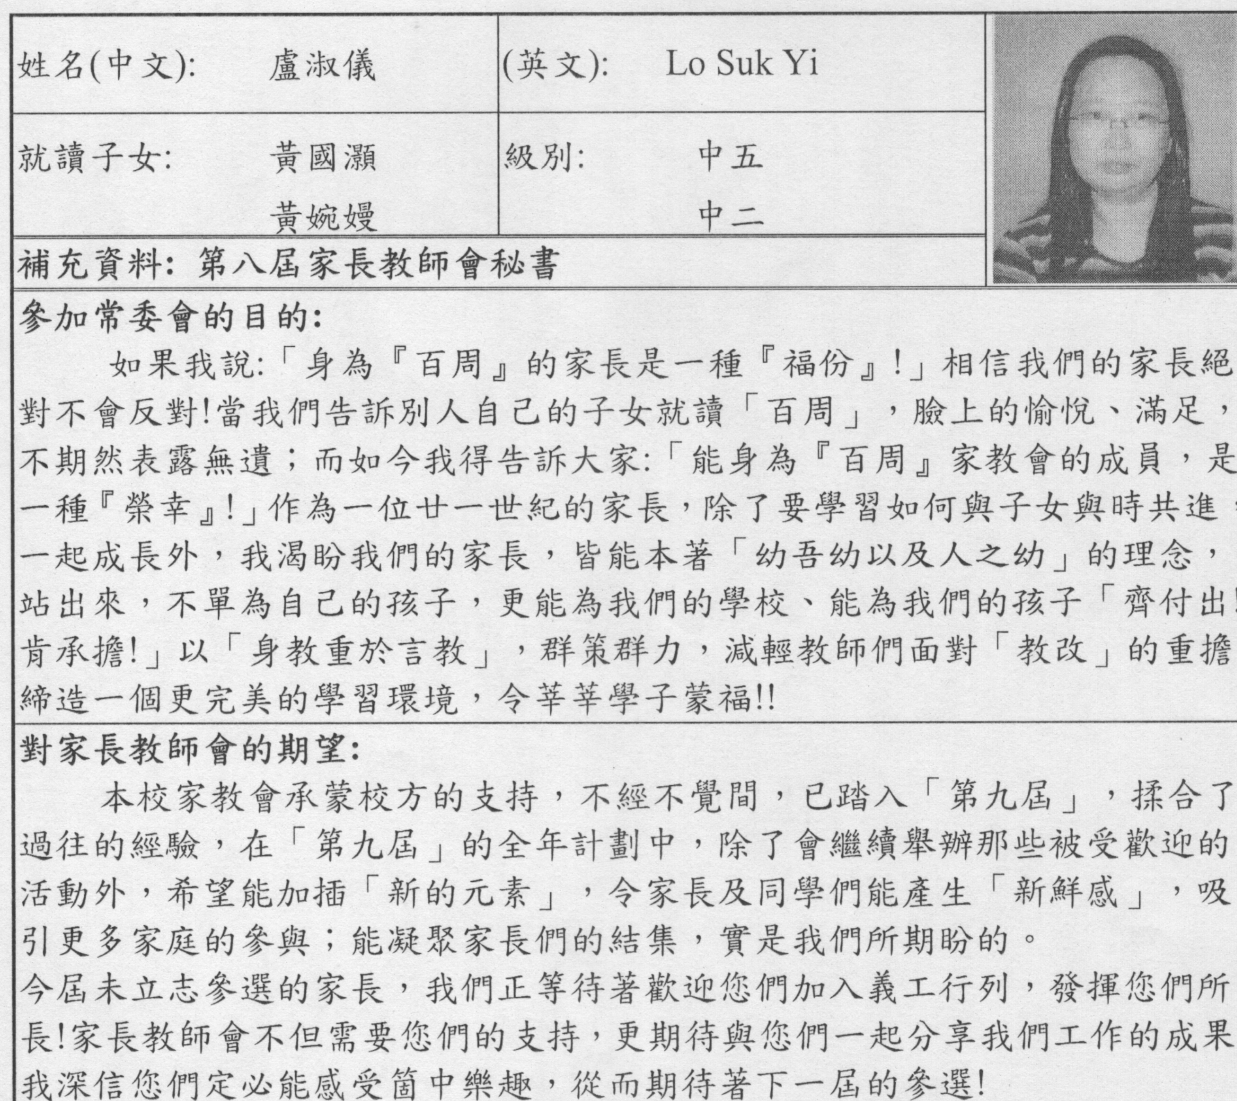 姓名(中文): 盧淑儀 (英文): Lo Suk Yi
就讀子女: 黃國灝 級別: 中五
黃婉嫚 中二
補充資料: 第八屆家長教師會秘書
參加常委會的目的:
如果我說:「身為『百周』的家長是一種『福份』!」相信我們的家長絕
對不會反對!當我們告訴別人自己的子女就讀「百周」，臉上的愉悅、滿足，
不期然表露無遺；而如今我得告訴大家:「能身為『百周』家教會的成員，是
一種『榮幸』!」作為一位廿一世紀的家長，除了要學習如何與子女與時共進，
一起成長外，我渴盼我們的家長，皆能本著「幼吾幼以及人之幼」的理念，
站出來，不單為自己的孩子，更能為我們的學校、能為我們的孩子「齊付出!
肯承擔!」以「身教重於言教」，群策群力，減輕教師們面對「教改」的重擔
締造一個更完美的學習環境，令莘莘學子蒙福!!
對家長教師會的期望:
本校家教會承蒙校方的支持，不經不覺間，已踏入「第九屆」，揉合了
過往的經驗，在「第九屆」的全年計劃中，除了會繼續舉辦那些被受歡迎的
活動外，希望能加插「新的元素」，令家長及同學們能產生「新鮮感」，吸
引更多家庭的參與；能凝聚家長們的結集，實是我們所期盼的。
今屆未立志參選的家長，我們正等待著歡迎您們加入義工行列，發揮您們所
長!家長教師會不但需要您們的支持，更期待與您們一起分享我們工作的成果
我深信您們定必能感受箇中樂趣，從而期待著下一屆的參選!